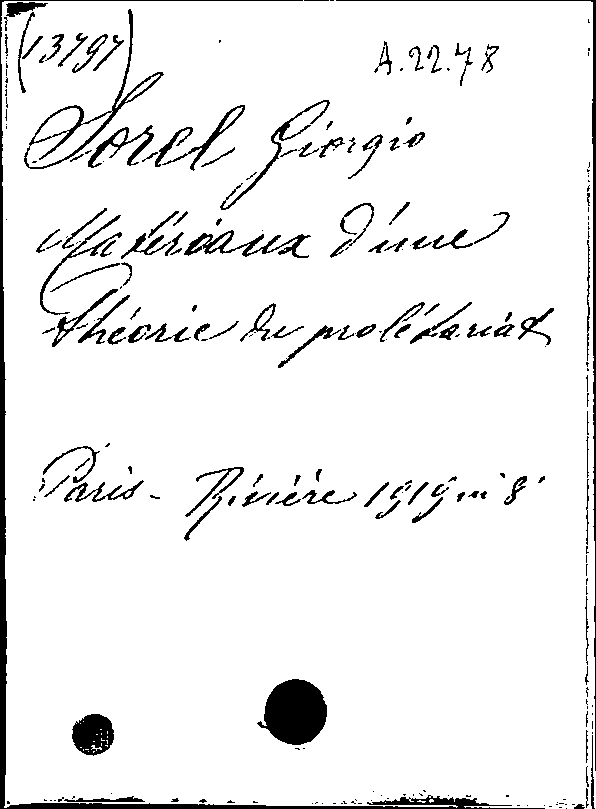 (13797)
A.22.78
Sorel Giorgio
Matériaux d'une
théorie du prolétariat
Paris - Rivière 1919 in 8°